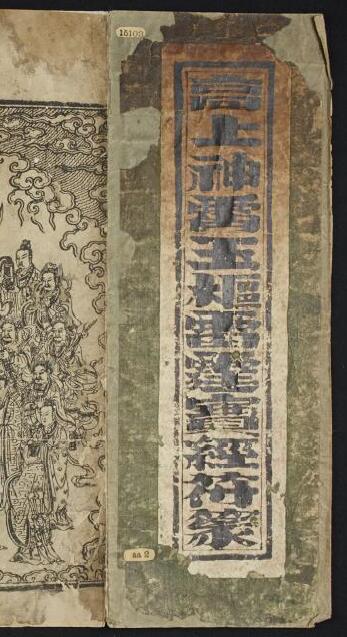 15103
高上神霄玉樞雷霆寶經符篆
aa 2